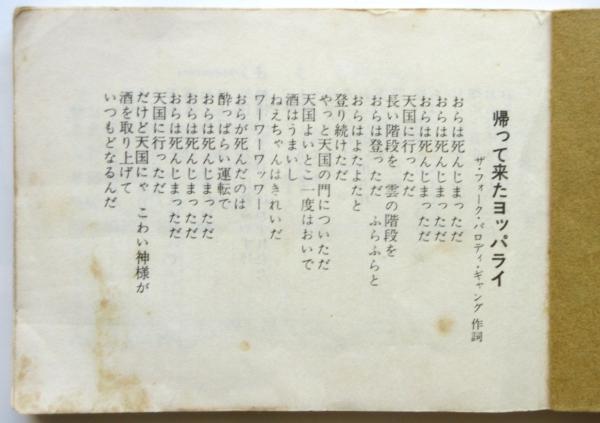 帰って来たヨッパライ
ザ・フォーク・パロディ・ギャング 作詞
おらは死んじまっただ
おらは死んじまっただ
おらは死んじまっただ
天国に行っただ
長い階段を 雲の階段を
おらは登っただ ふらふらと
おらはよたよたと
登り続けただ
やっと天国の門についただ
天国よいとこ一度はおいで
酒はうまいし
ねえちゃんはきれいだ
ワーワーワッワー
おらが死んだのは
酔っぱらい運転で
おらは死んじまっただ
おらは死んじまっただ
おらは死んじまっただ
天国に行っただ
だけど天国にゃ こわい神様が
酒を取り上げて
いつもどなるんだ